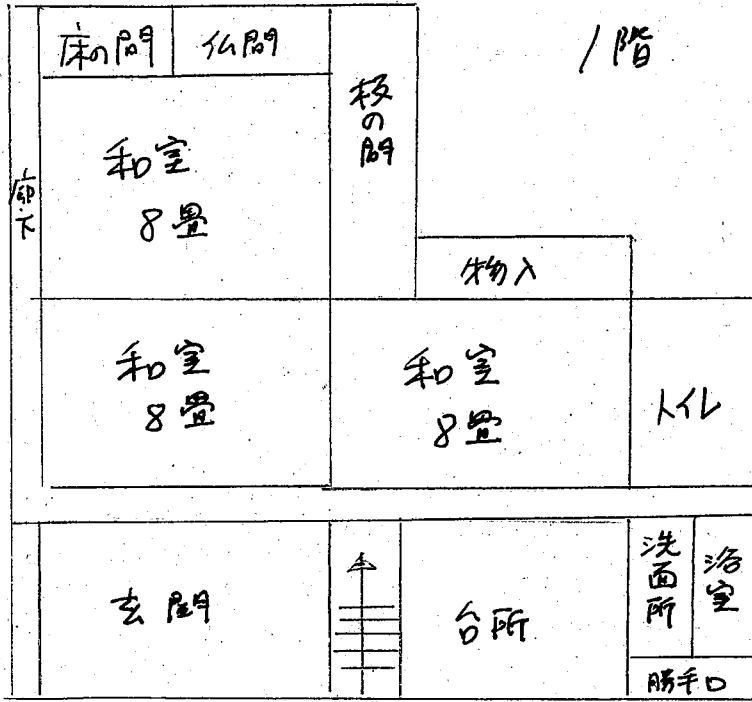 1階
床の間
仏間
板の間
和室
8畳
廊下
物入
和室
8畳
和室
8畳
トイレ
玄関
台所
洗面所
浴室
勝手口